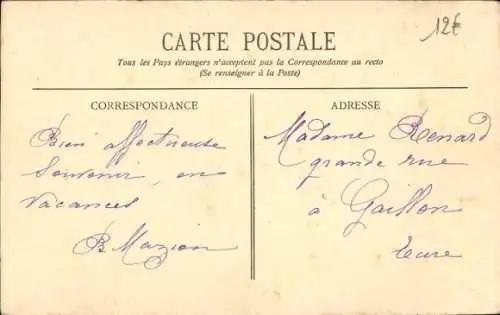 12€
CARTE POSTALE
Tous les Pays étrangers n'acceptent pas la Correspondance au recto
(Se renseigner à la Poste)
CORRESPONDANCE
Bien affectueuse
souvenir, en
vacances
B Mazion
ADRESSE
Madame Renard
grande rue
à Gaillon
Eure